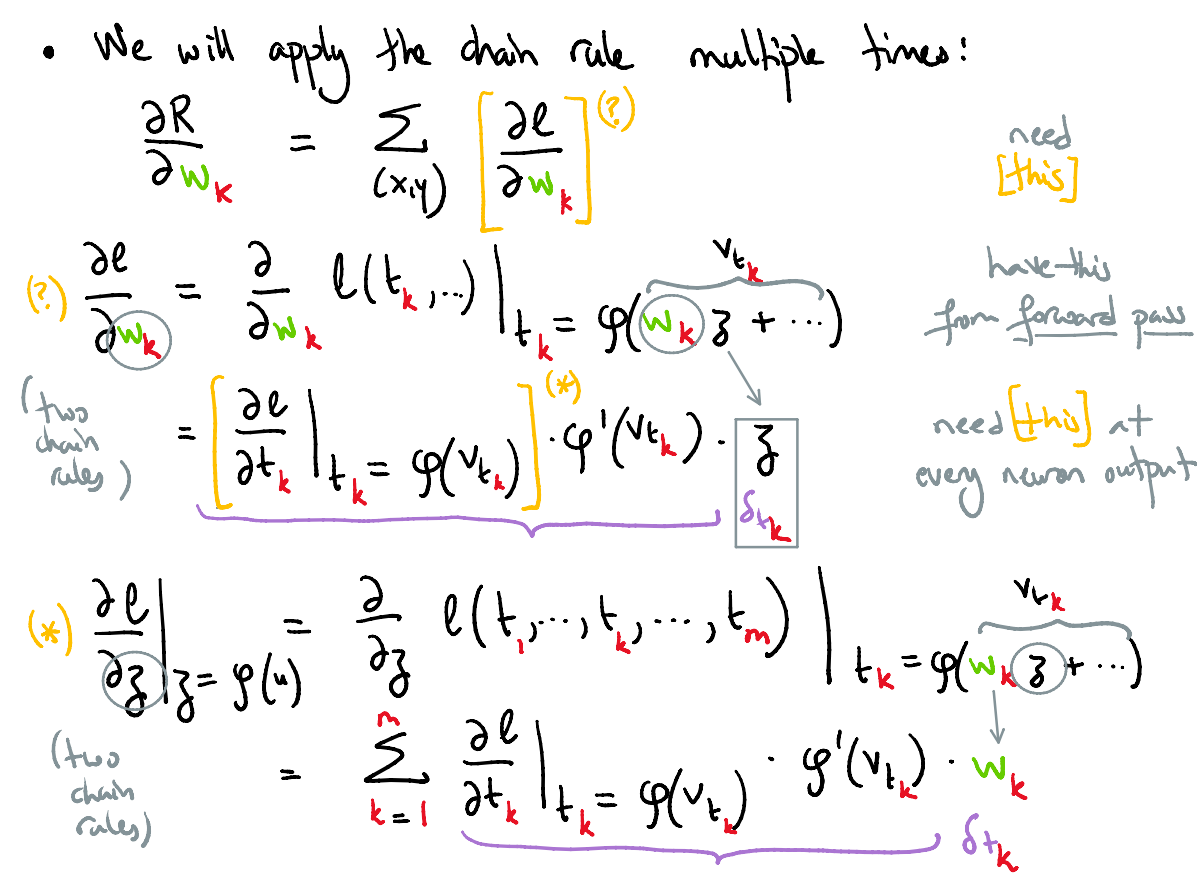 • We will apply the chain rule multiple times:
∂R/∂w_k = Σ_(x,y) [∂ℓ/∂w_k]^(?)
need
[this]
(?) ∂ℓ/∂w_k = ∂/∂w_k ℓ(t_k,...) |_{t_k = φ(w_k z + ...)} v_{t_k}
have this
from forward pass
(two
chain
rules)
= [∂ℓ/∂t_k |_{t_k = φ(v_{t_k})}]^(*) · φ'(v_{t_k}) · z
δ_{t_k}
need [this] at
every neuron output
(*) ∂ℓ/∂z |_{z = φ(u)} = ∂/∂z ℓ(t_1,...,t_k,...,t_m) |_{t_k = φ(w_k z + ...)} v_{t_k}
(two
chain
rules)
= Σ_{k=1}^{m} ∂ℓ/∂t_k |_{t_k = φ(v_{t_k})} · φ'(v_{t_k}) · w_k
δ_{t_k}